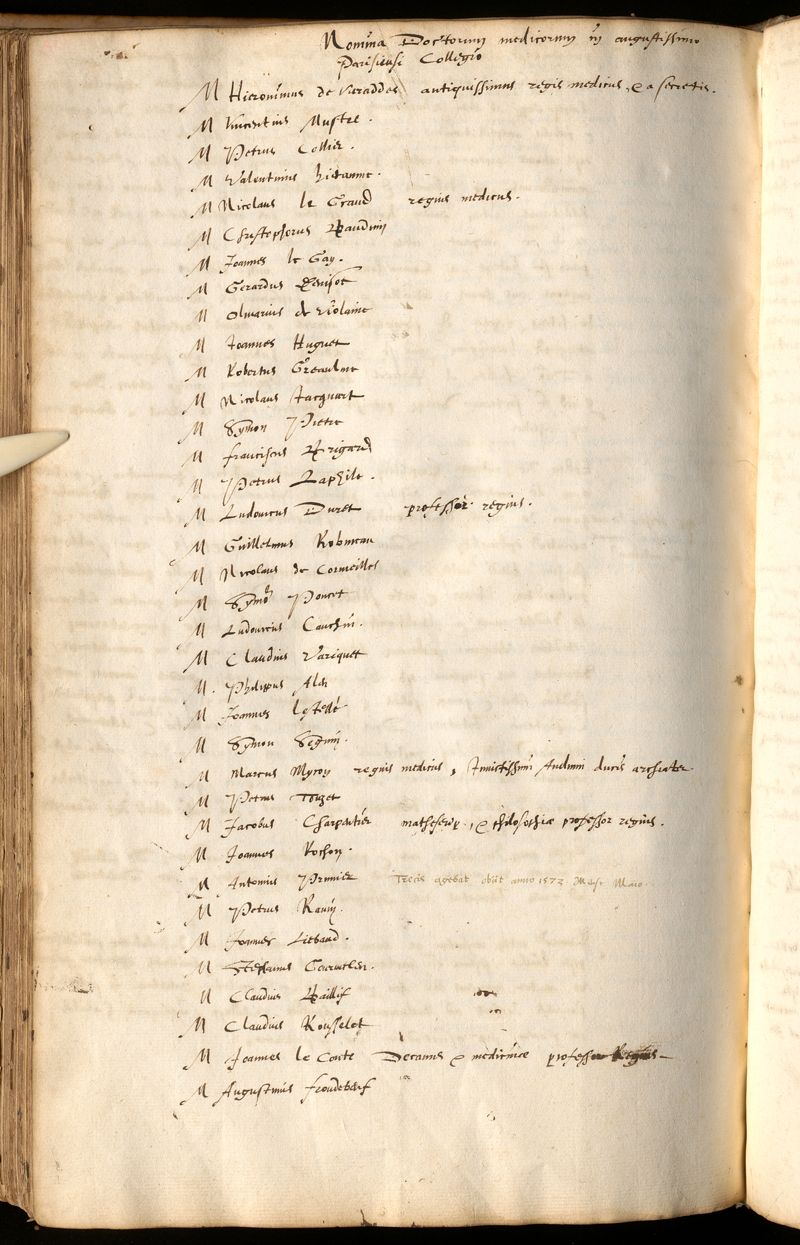 Nomina Doctorum medicorum in augustissimo
Parisiensi Collegio
M Hieronimus de Varadde antiquissimus regis medicus, & a secretis.
M Vincentius Mustel.
M Petrus Collier.
M Valentinus hieraume.
M Nicolaus le Grand regius medicus.
M Christophorus Baudouin
M Joannes le Gay.
M Gerardus
M Olivarius de Violaine
M Joannes Huguet
M Robertus Greaulme
M Nicolaus Jacquart
M Symon Pietre
M franciscus Brigard
M Petrus Laphile.
M Ludovicus Duret professor regius.
M Guillelmus Robineau
M Nicolaus de Corneilles
M Symo Poncet
M Ludovicus Cauchin.
M Claudius Variquet
M. Philippus
M Joannes
M Symon Seguin.
M Marcus Myron regius medicus, Invictissimi Andini ducis archiater.
M Petrus
M Jacobus Charpentier & philosophiæ professor regius.
M Joannes Rochon.
M Antonius Trecis agebat obiit anno 1573 Mense Maio.
M Petrus Ravin.
M Joannes Liebaud.
M Stephanus Gourmelen.
M Claudius Baillif
M Claudius Rousselet
M Joannes le Conte Decanus & medicinæ professor Regius
M Augustinus froudebeuf